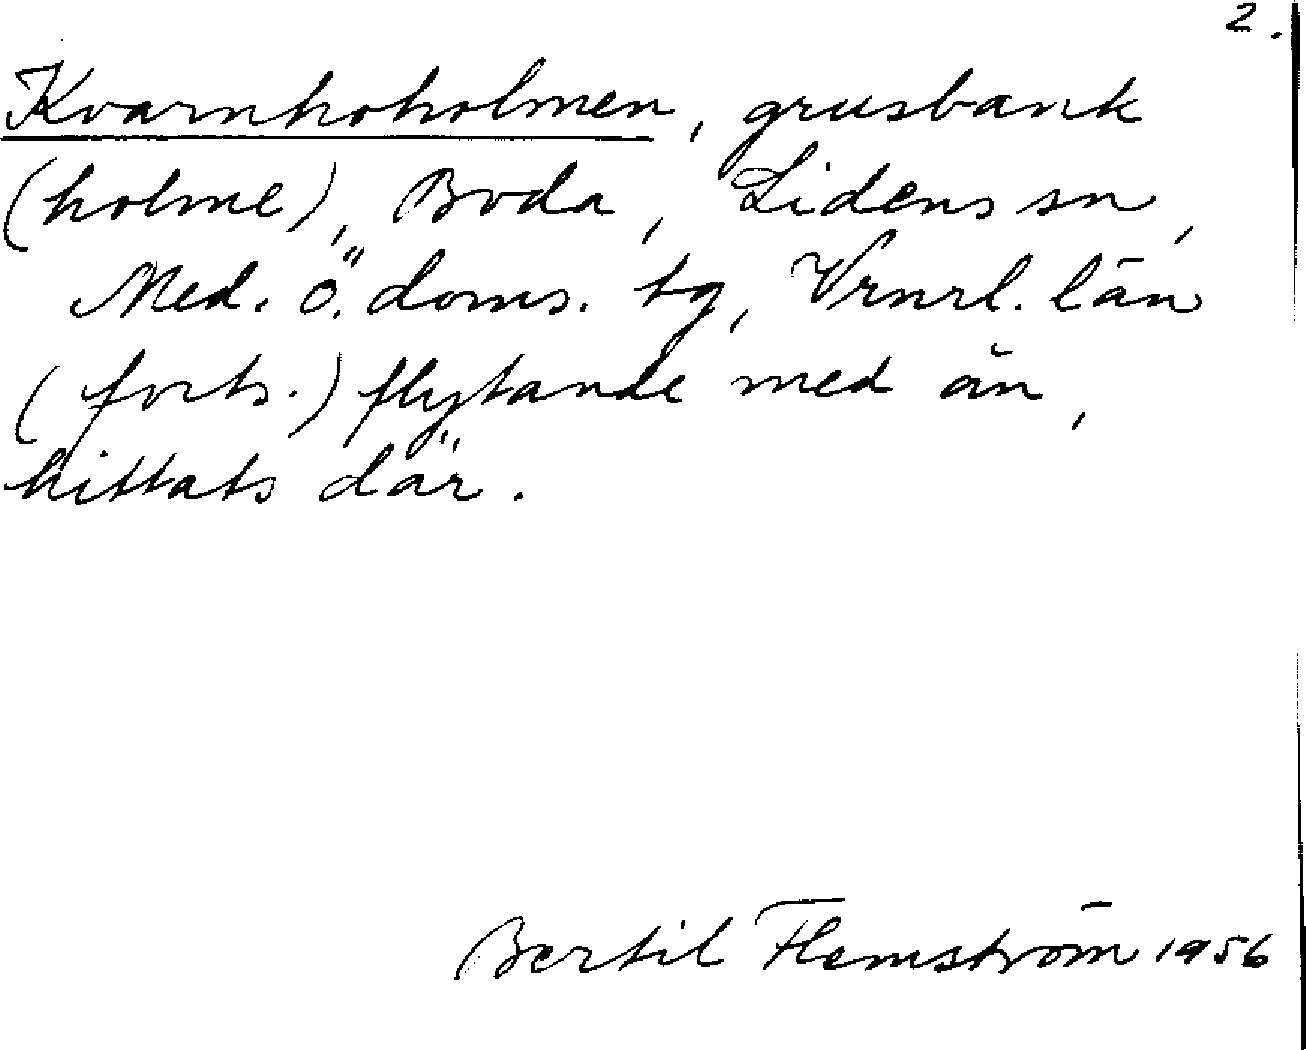 2.
Kvarnhoholmen, grusbank
(holme), Boda, Lidens sn,
Med. ö. doms. tg, Vrnrl. län
(forts.) flytande med ån,
hittats där.
Bertil Flemström 1956